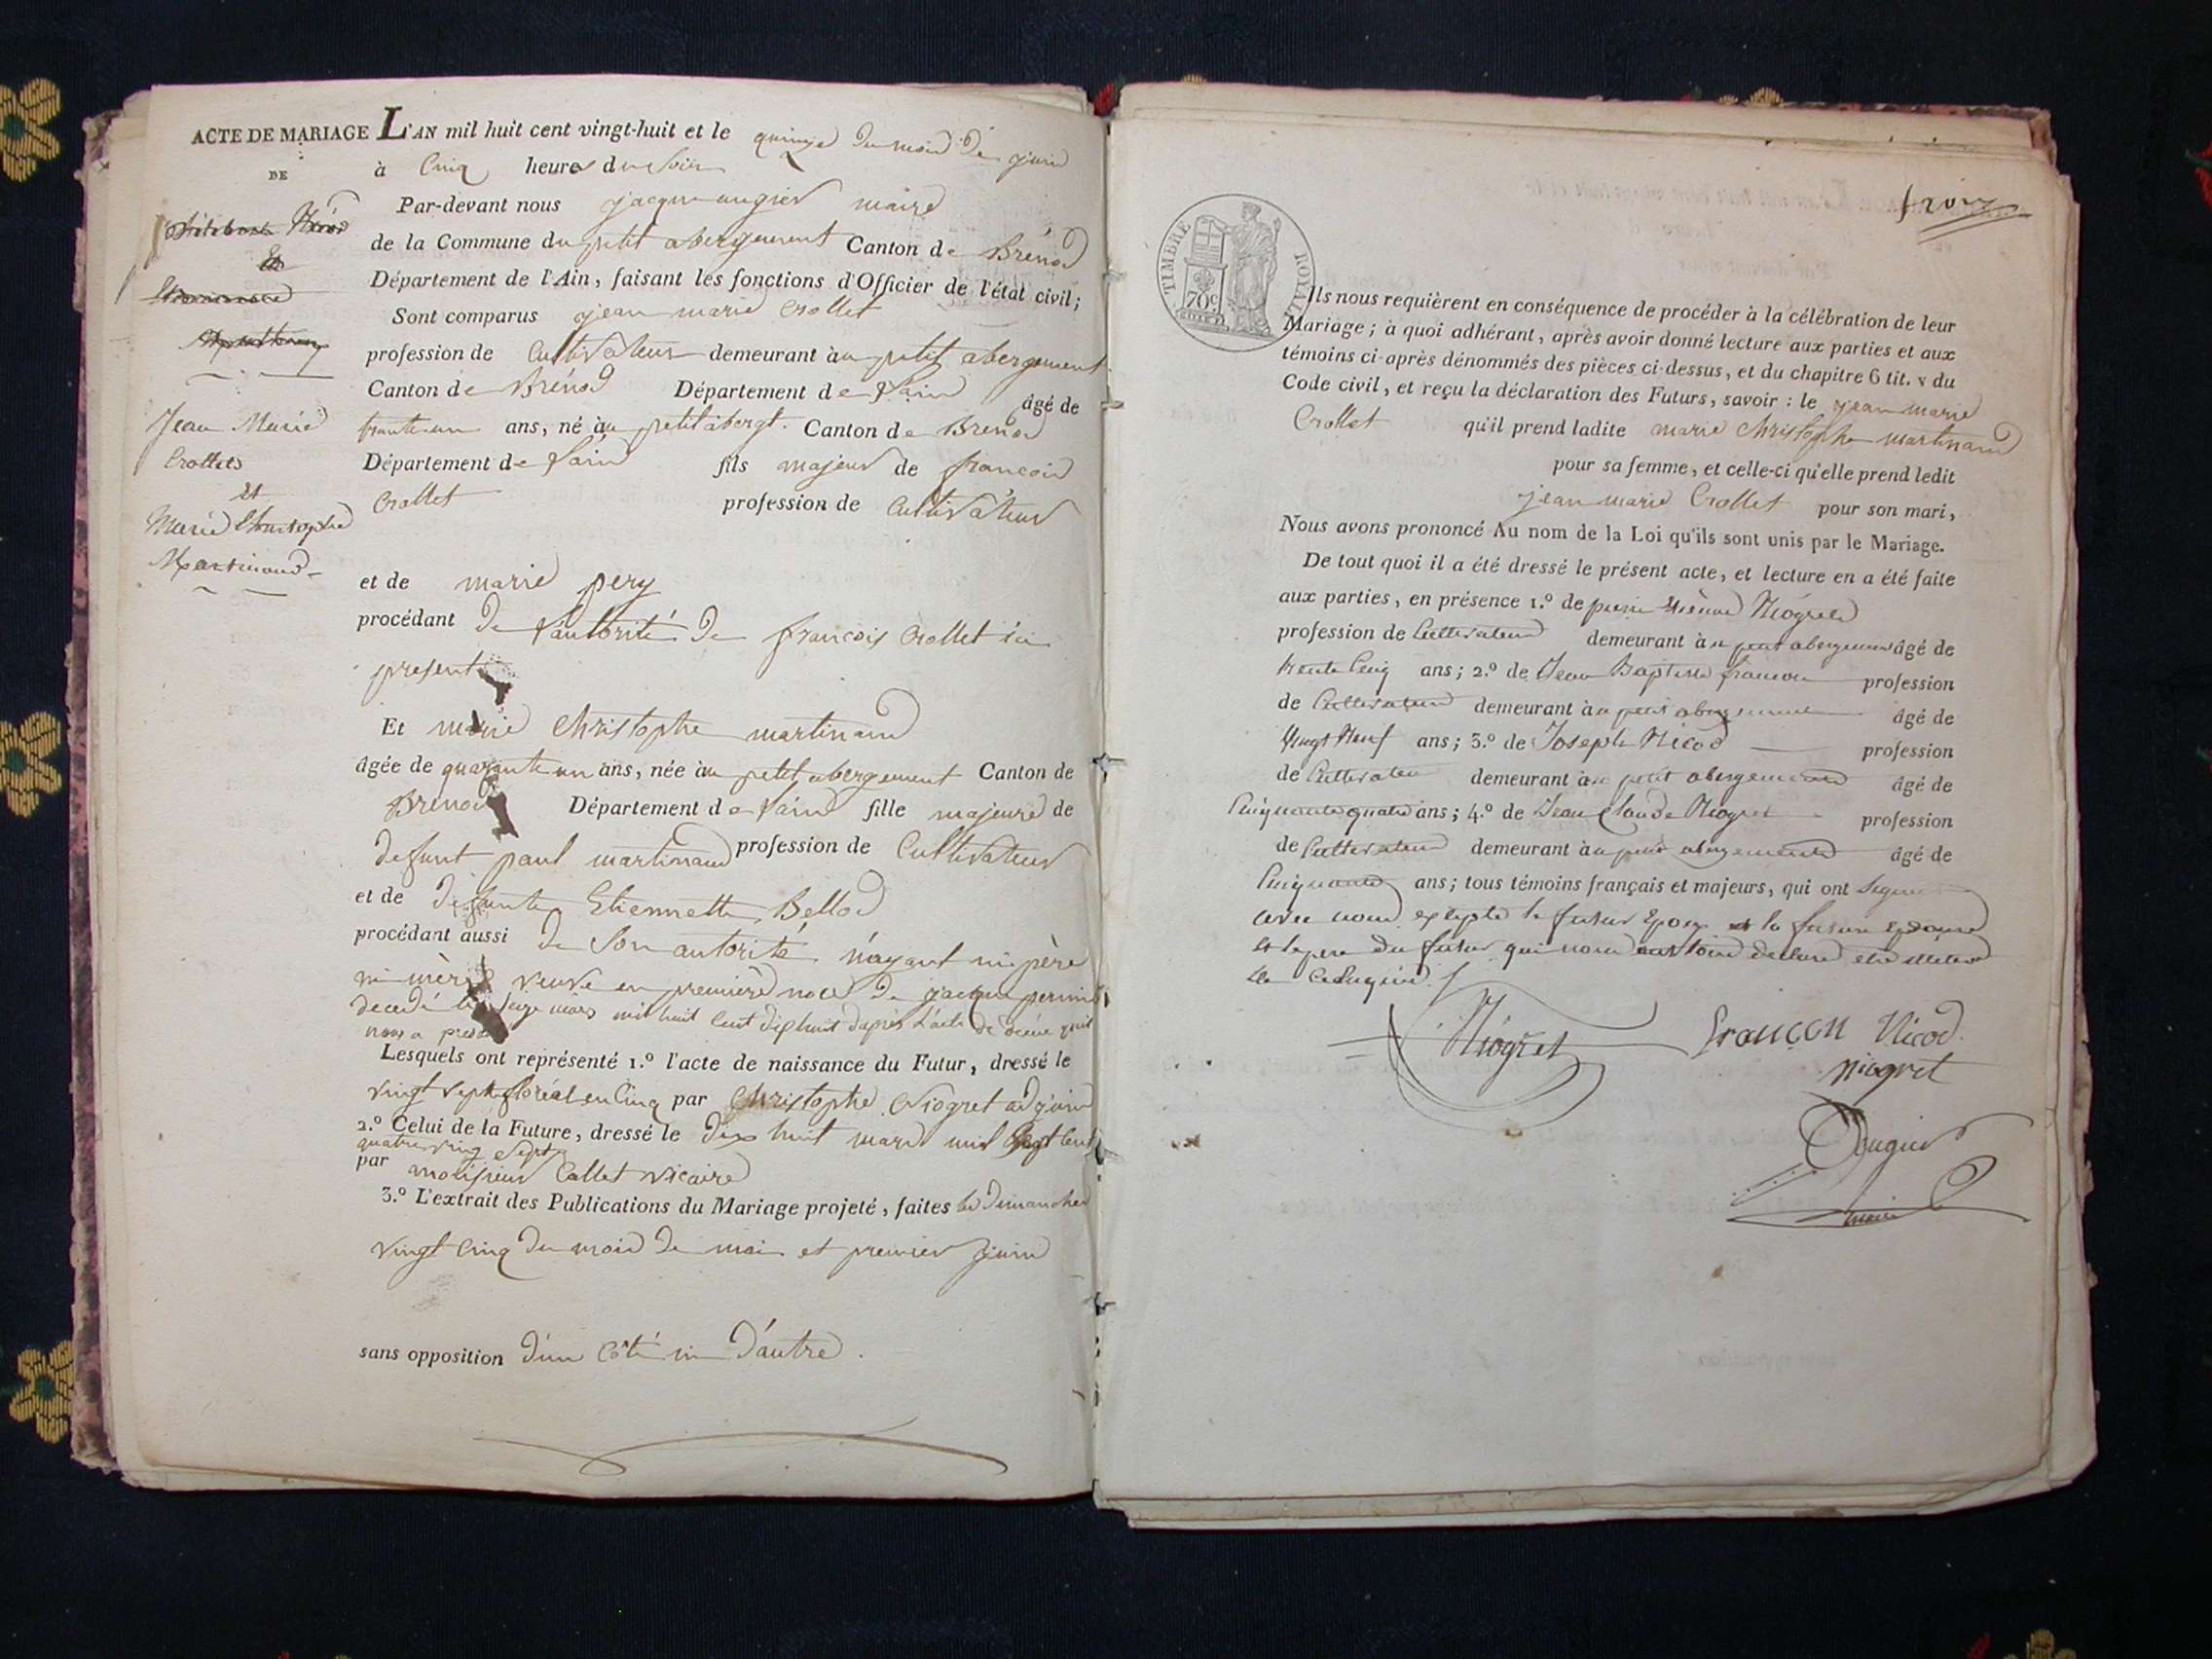 ACTE DE MARIAGE
DE
Nicod
Et
Jean Marie
Crollet
et
Marie Christophe
Martinand
L'AN mil huit cent vingt-huit et le quinze du mois de juin
à Cinq heures du soir
Par-devant nous jacque augier maire
de la Commune du petit abergement Canton de Brénod
Département de l'Ain, faisant les fonctions d'Officier de l'état civil;
Sont comparus jean marie Crollet
profession de Cultivateur demeurant au petit abergement
Canton de Brénod Département de l'ain âgé de
trente un ans, né au petit abergt. Canton de Brénod
Département de l'ain fils majeur de françois
Crollet profession de Cultivateur
et de marie pery
procédant De l'autorité De françois Crollet ici
present
Et marie Christophe martinand
âgée de quarante un ans, née au petit abergement Canton de
Brénod Département de l'ain fille majeure de
defunt paul martinand profession de Cultivateur
et de defunte Etiennette Bellod
procédant aussi de Son autorité n'ayant ni père
ni mère veuve en première noce De jacque
decedé le seize mars mil huit Cent dix huit d'après l'acte de
nous a
Lesquels ont représenté 1.º l'acte de naissance du Futur, dressé le
vingt sept floréal en Cinq par Christophe Niogret adjoint
2.º Celui de la Future, dressé le dix huit mars mil sept Cent
quatre ving sept
par monsieur Callet vicaire
3.º L'extrait des Publications du Mariage projeté, faites les Dimanches
vingt Cinq du mois De mai et premier juin
sans opposition D'un Côté ni D'autre.
TIMBRE ROYAL
70c
Ils nous requièrent en conséquence de procéder à la célébration de leur
Mariage; à quoi adhérant, après avoir donné lecture aux parties et aux
témoins ci-après dénommés des pièces ci-dessus, et du chapitre 6 tit. v du
Code civil, et reçu la déclaration des Futurs, savoir : le jean marie
Crollet qu'il prend ladite marie Christophe martinand
pour sa femme, et celle-ci qu'elle prend ledit
jean marie Crollet pour son mari,
Nous avons prononcé Au nom de la Loi qu'ils sont unis par le Mariage.
De tout quoi il a été dressé le présent acte, et lecture en a été faite
aux parties, en présence 1.º de pierre Niogret
profession de Cultivateur demeurant au petit abergement âgé de
trente Cinq ans; 2.º de Jean Baptiste françon profession
de Cultivateur demeurant au petit abergement âgé de
Vingt Neuf ans; 3.º de Joseph Nicod profession
de Cultivateur demeurant au petit abergement âgé de
Cinquante quatre ans; 4.º de Jean Claude Niogret profession
de Cultivateur demeurant au petit abergement âgé de
Cinquante ans; tous témoins français et majeurs, qui ont Signé
avec nous excepté le futur Epoux et la future Epouse
et le pere du futur qui nous ont declaré etre
de
Niogret
françon Nicod
niogret
Augier
maire